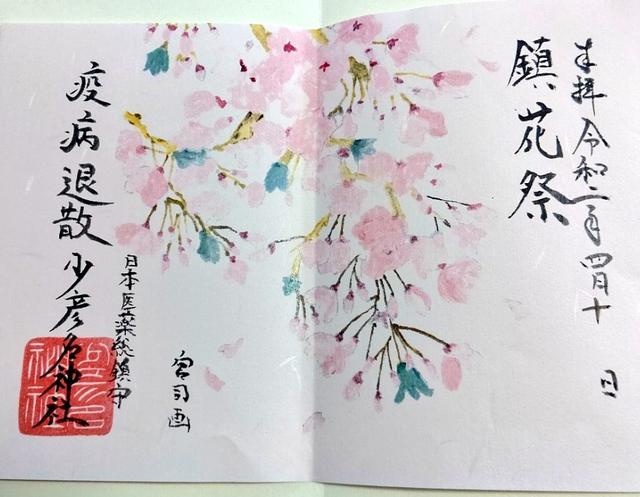 奉拝 令和二年 四月十 日
鎮花祭
宮司画
日本医薬総鎮守
疫病退散 少彦名神社